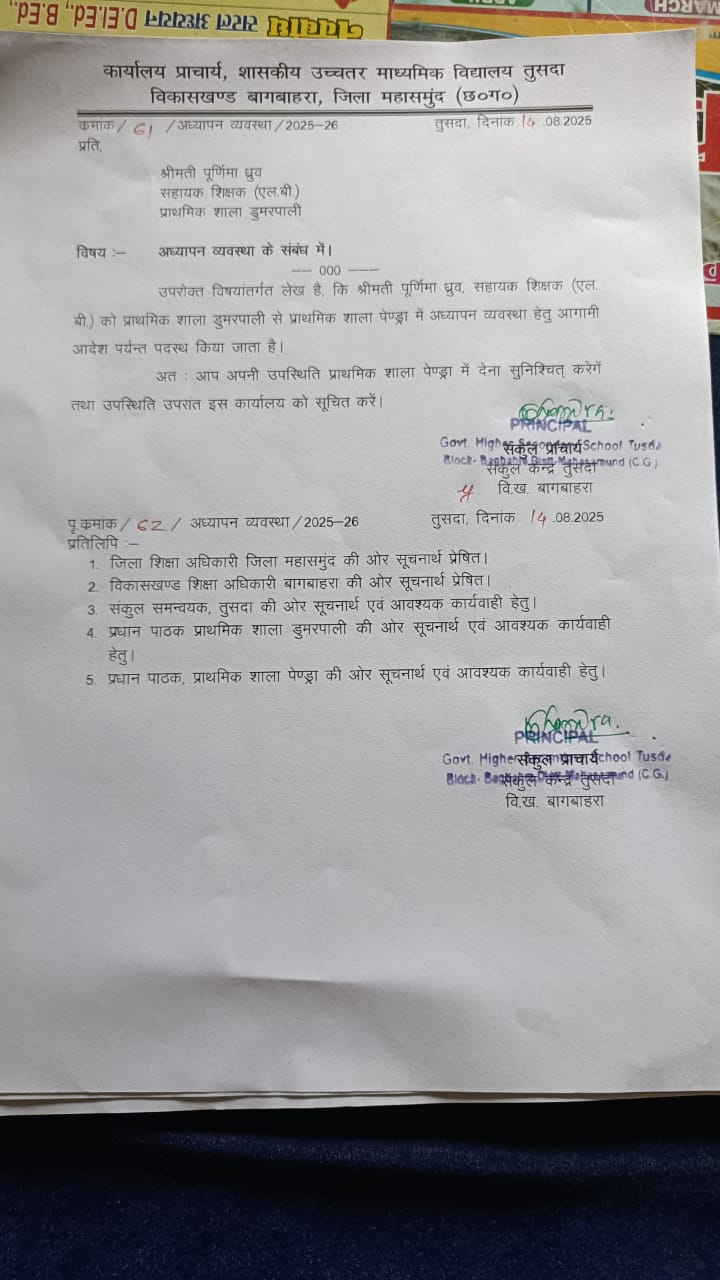 नवबोध सरल अध्ययन D.El.Ed., B.Ed.,
MARCH
कार्यालय प्राचार्य, शासकीय उच्चतर माध्यमिक विद्यालय तुसदा
विकासखण्ड बागबाहरा, जिला महासमुंद (छ०ग०)
कमांक / 61 / अध्यापन व्यवस्था / 2025-26 तुसदा, दिनांक 14 .08.2025
प्रति,
श्रीमती पूर्णिमा ध्रुव
सहायक शिक्षक (एल.बी.)
प्राथमिक शाला डुमरपाली
विषय :– अध्यापन व्यवस्था के संबंध में।
–– 000 –––
उपरोक्त विषयांतर्गत लेख है, कि श्रीमती पूर्णिमा ध्रुव, सहायक शिक्षक (एल.
बी.) को प्राथमिक शाला डुमरपाली से प्राथमिक शाला पेण्ड्रा में अध्यापन व्यवस्था हेतु आगामी
आदेश पर्यन्त पदस्थ किया जाता है।
अत : आप अपनी उपस्थिति प्राथमिक शाला पेण्ड्रा में देना सुनिश्चित् करेगें
तथा उपस्थिति उपरांत इस कार्यालय को सूचित करें।
PRINCIPAL
Govt. Higher Secondary School Tusda
संकुल प्राचार्य
Block- Bagbahra Dist- Mahasamund (C.G.)
संकुल केन्द्र तुसदा
वि.ख. बागबाहरा
पृ.कमांक / 62 / अध्यापन व्यवस्था / 2025-26 तुसदा, दिनांक 14 .08.2025
प्रतिलिपि :–
1. जिला शिक्षा अधिकारी जिला महासमुंद की ओर सूचनार्थ प्रेषित।
2. विकासखण्ड शिक्षा अधिकारी बागबाहरा की ओर सूचनार्थ प्रेषित।
3. संकुल समन्वयक, तुसदा की ओर सूचनार्थ एवं आवश्यक कार्यवाही हेतु।
4. प्रधान पाठक प्राथमिक शाला डुमरपाली की ओर सूचनार्थ एवं आवश्यक कार्यवाही
हेतु।
5. प्रधान पाठक, प्राथमिक शाला पेण्ड्रा की ओर सूचनार्थ एवं आवश्यक कार्यवाही हेतु।
PRINCIPAL
Govt. Higher Secondary School Tusda
संकुल प्राचार्य
Block- Bagbahra Dist- Mahasamund (C.G.)
संकुल केन्द्र तुसदा
वि.ख. बागबाहरा